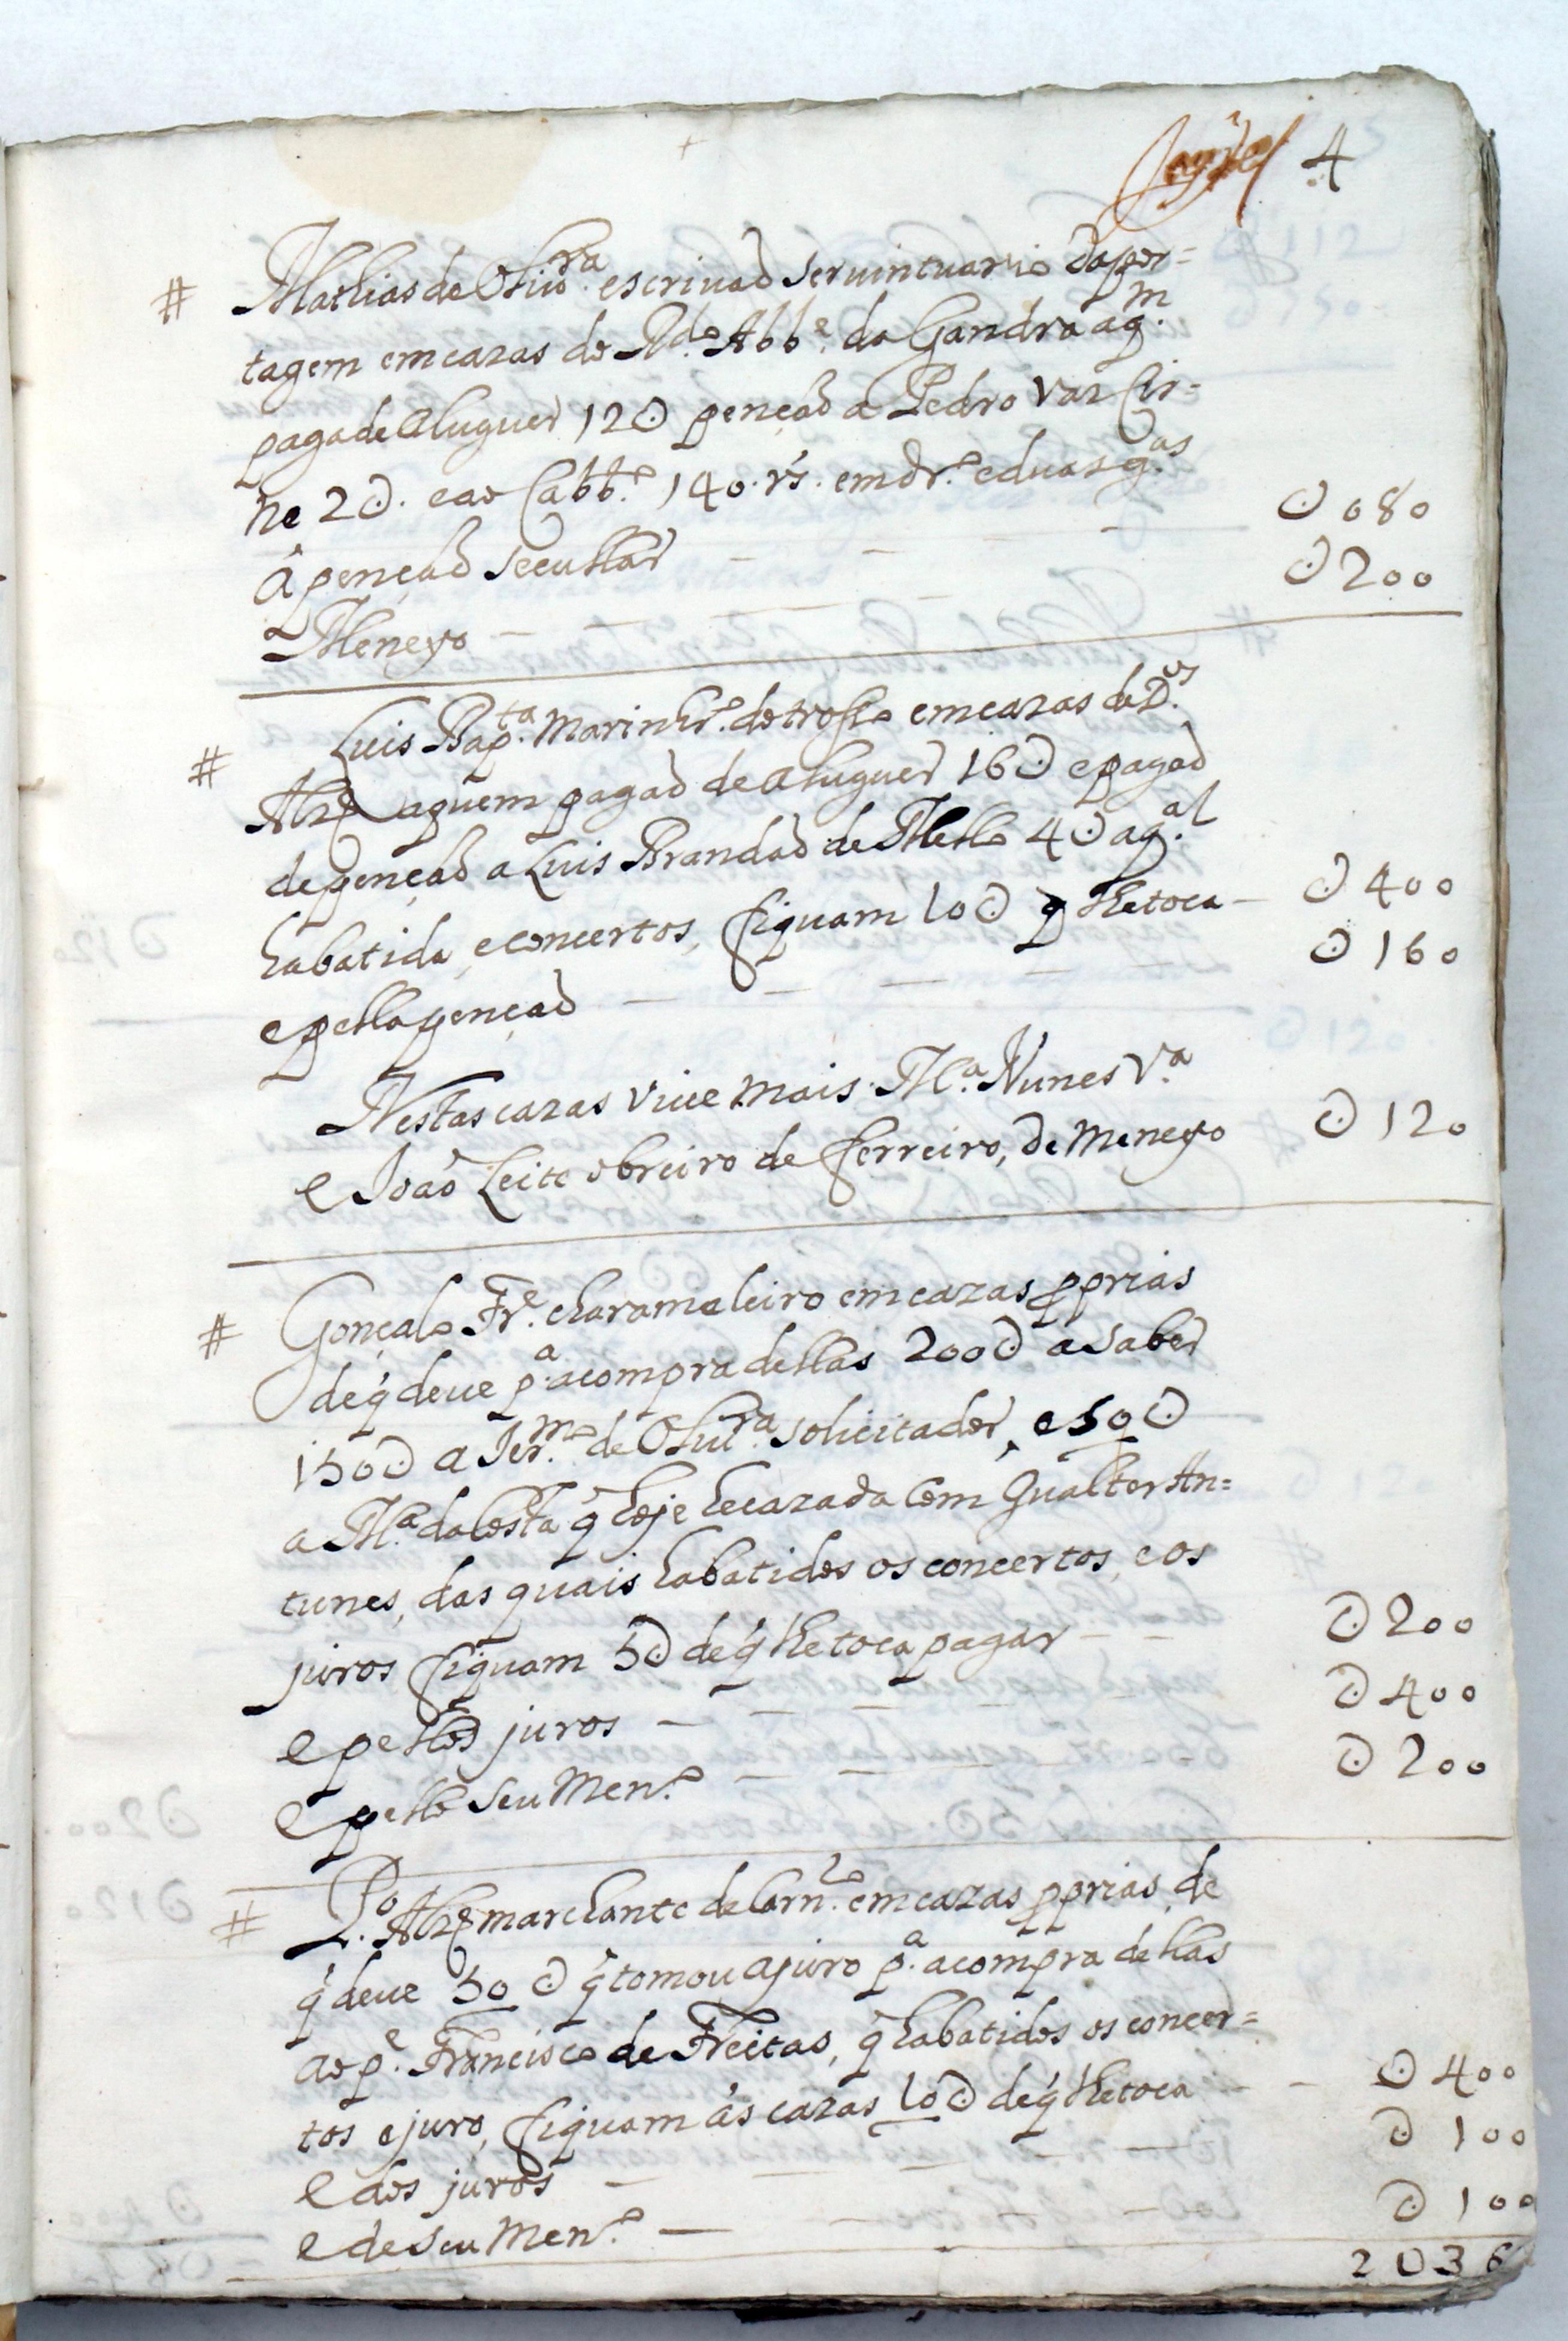 4
# Mathias de Oliu.ra escriuaõ seruintuario da por=
tagem em cazas do R.do Abb.e da Gandra a q.m
paga de aluguer 12U pençaõ a Pedro Vaz Cir=
ne 2U. e ao Cabb.o 140. rs. em dr.o e duas g.as
á pençaõ secullar — — — U080
Meneyo — — — — U200
# Luis Bap.ta Marinhr.o do trosso em cazas de D.os
Alz a quem pagaõ de aluguer 16U e pagaõ
de pençaõ a Luis Brandaõ de Mello 4U a q.al
habatida, e concertos, fiquam 10U q̃ lhe toca — U400
e pella pençaõ — — — — — U160
Nestas cazas viue mais M.a Nunes V.a
e Joaõ Leite obreiro de ferreiro, de meneyo U120
# Gonçalo Fr.e charameleiro em cazas pprias
de q̃ deue p.a a compra dellas 200U a saber
150U a Jer.mo de Oliu.ra solicitador, e 50U
a M.a da Costa q̃ hoje he cazada com Gualter An=
tunes, das quais habatidos os concertos, e os
juros fiquam 5U de q̃ lhe toca pagar — — U200
e pellos juros — — — — — U400
e pello seu Men.o — — — — U200
# P.o Alz marchante de Carn.ro em cazas pprias, de
q̃ deue 50U q̃ tomou a juro p.a a compra dellas
ao p.e Francisco de Freitas, q̃ habatidos os concer=
tos e juro, fiquam ás cazas 10U de q̃ lhe toca — — U400
e dos juros — — — — — U100
e de seu Men.o — — — — U100
2U36